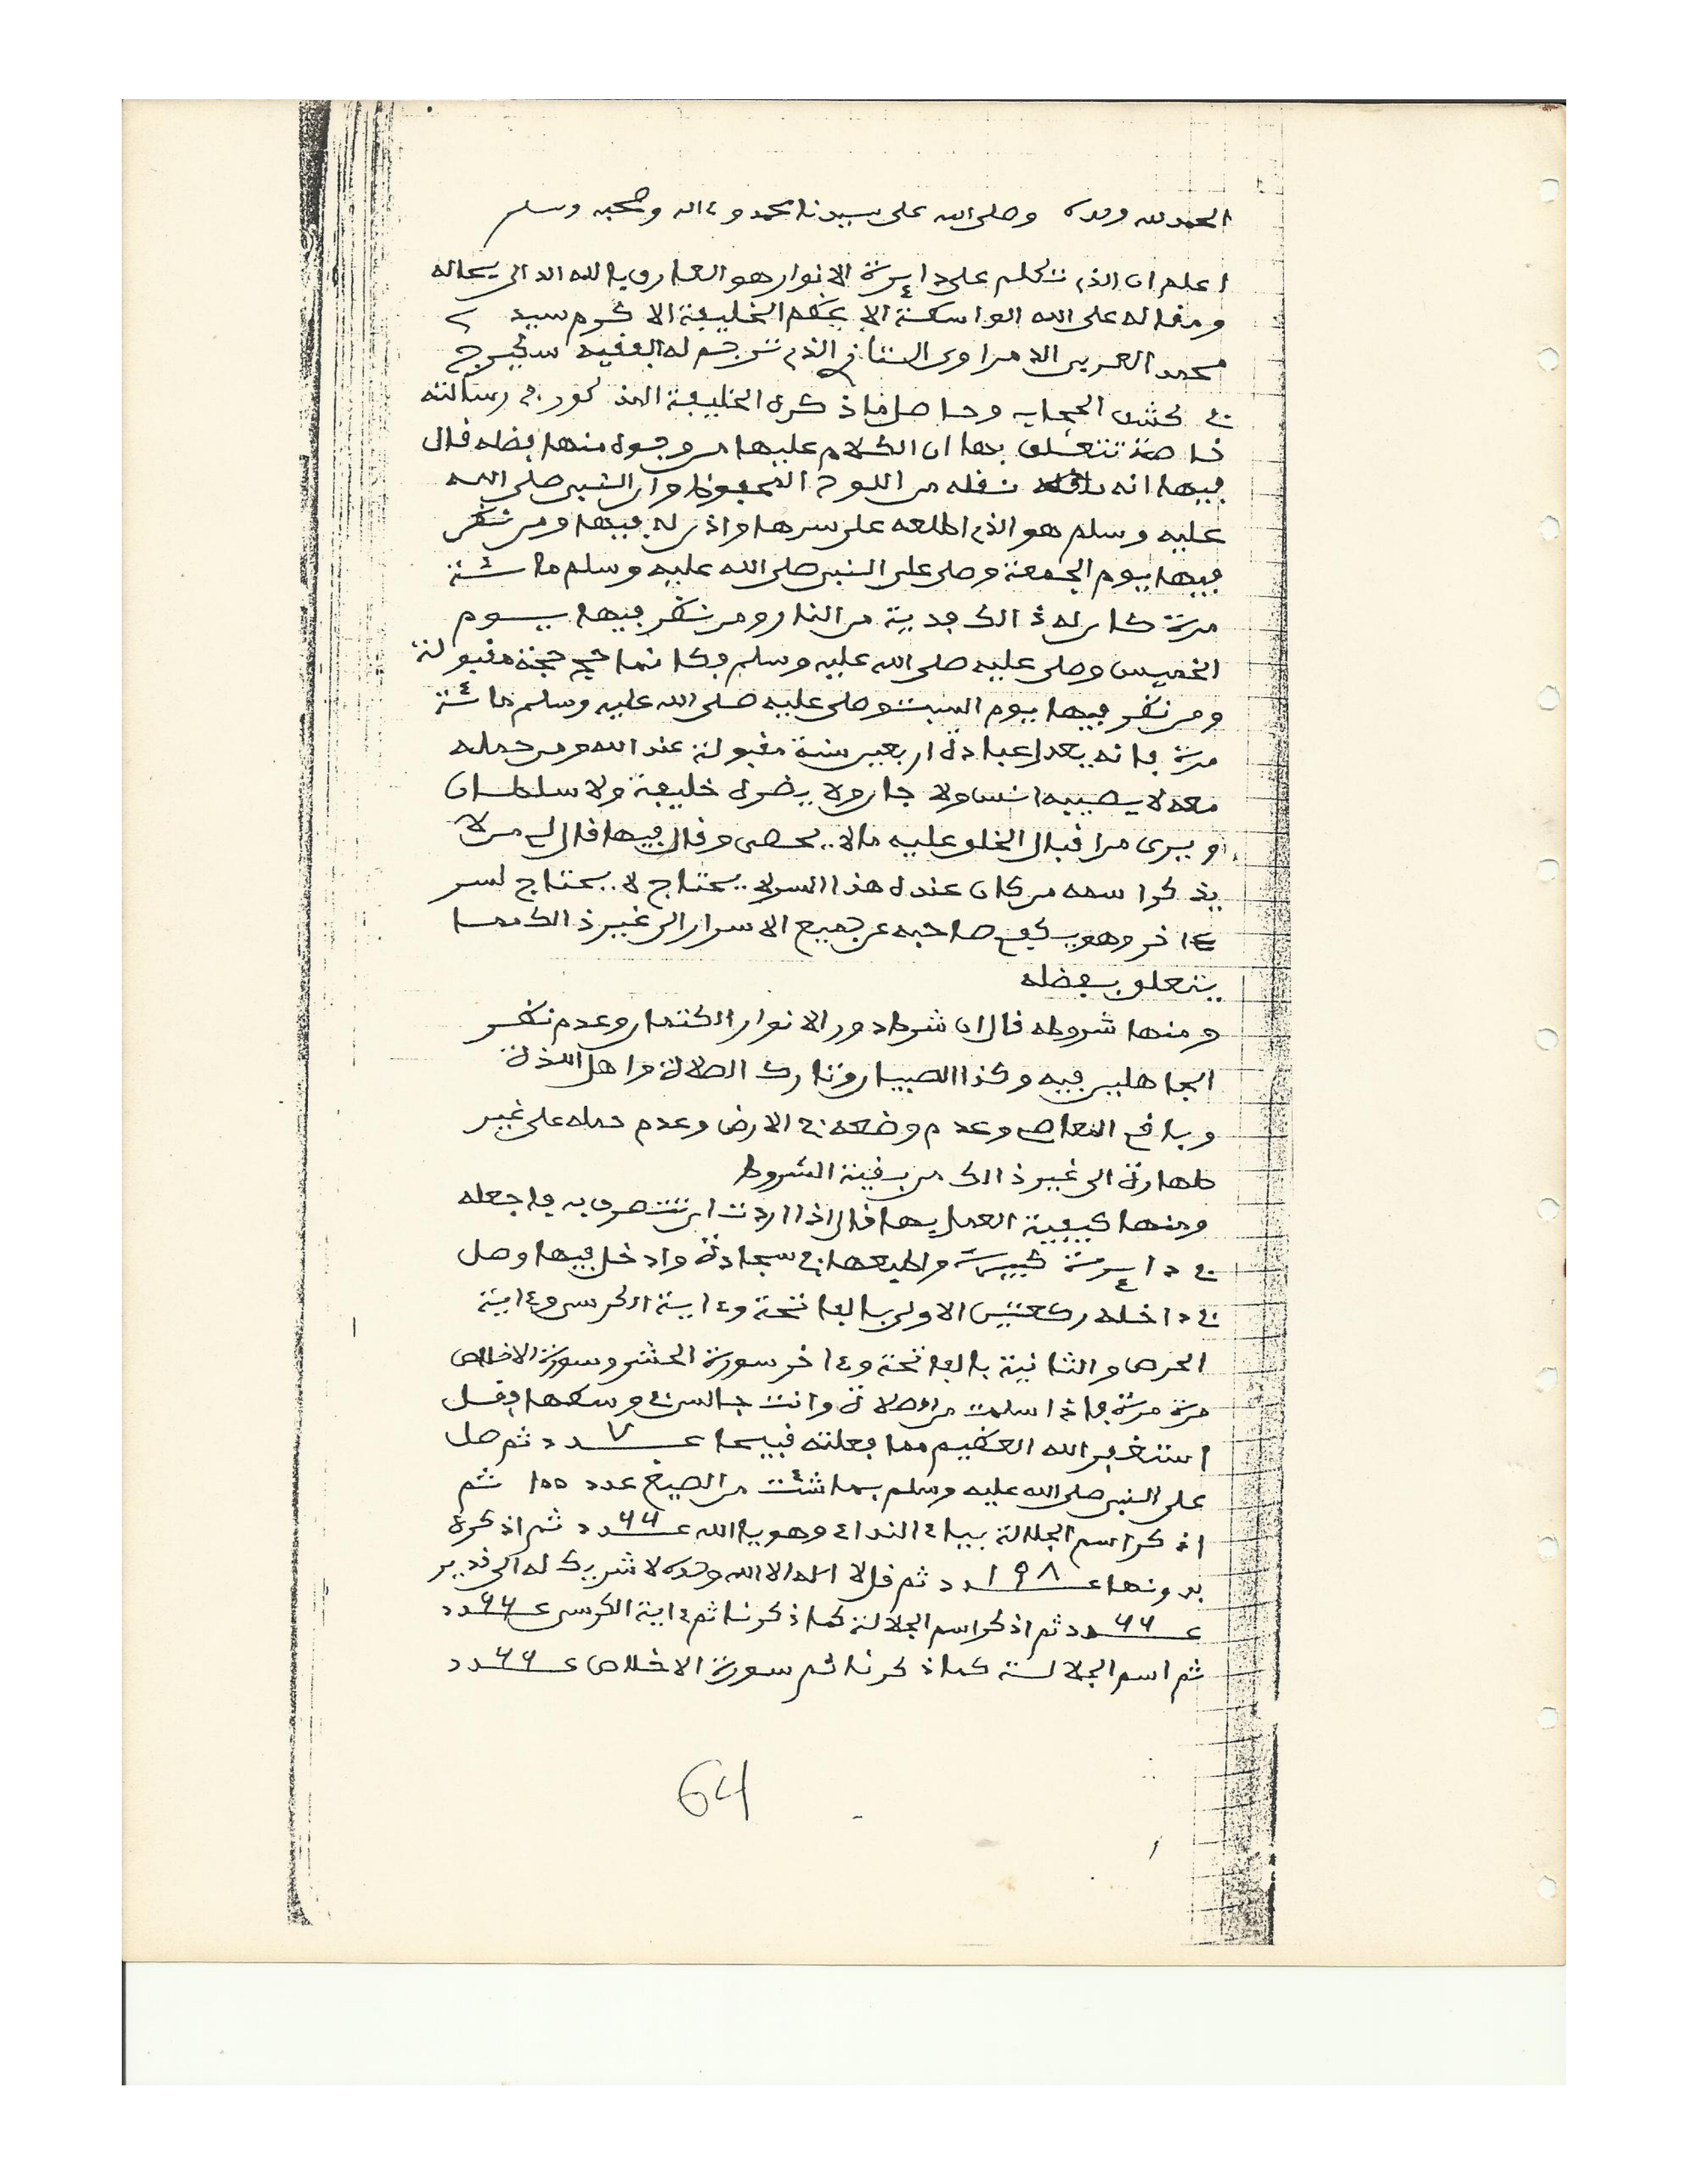 الحمد لله وحده وصلى الله على سيدنا محمد وءاله وصحبه وسلم
اعلم ان الذى تكلم على دايرة الانوار هو العارف بالله الدال بحاله
ومقاله على الله الواسطة الاعظم الخليفة الاكرم سيد
محمد العربى الدمراوى التازى الذى ترجم له الفقيه سكيرج
فى كشف الحجاب وحاصل ما ذكره الخليفة المذكور فى رسالته
خاصة تتعلق بها ان الكلام عليها من وجوه منها فضله قال
فيها انه نقله من اللوح المحفوظ وان النبى صلى الله
عليه وسلم هو الذى اطلعه على سرها واذن له فيها ومن نظر
فيها يوم الجمعة وصلى على النبى صلى الله عليه وسلم مائة
مرة كان له ذالك فدية من النار ومن نظر فيها يوم
الخميس وصلى عليه صلى الله عليه وسلم فكانما حج حجة مقبولة
ومن نظر فيها يوم السبت وصلى عليه صلى الله عليه وسلم مائة
مرة فانه يعدل عبادة اربعين سنة مقبولة عند الله ومن حمله
معه لا يصيبه انس ولا جان ولا يضره خليفة ولا سلطان
ويرى من اقبال الخلق عليه ما لا يحصى وقال فيها قال لى من لا
يذكر اسمه من كان عنده هذا السر لا يحتاج لا يحتاج لسر
ءاخر وهو يكفى صاحبه عن جميع الاسرار الى غير ذالك مما
يتعلق بفضله
ومنها شروطه قال ان شرط دور الانوار الكتمان وعدم نظر
الجاهلين فيه وكذا الصبيان وتارك الصلاة واهل اللذة
وباقى المعاصى وعدم وضعه فى الارض وعدم حمله على غير
طهارة الى غير ذالك من بقية الشروط
ومنها كيفية العمل بها قال اذا اردت ان تتصرف به فاجعله
فى دايرة كبيرة واطبعها فى سجادة وادخل فيها وصل
فى داخله ركعتين الاولى بالفاتحة وءاية الكرسى وءاية
الحرص والثانية بالفاتحة وءاخر سورة الحشر وسورة الاخلاص
مرة مرة فاذا سلمت من الصلاة وانت جالس فى وسطها فقل
استغفر الله العظيم مما فعلته قبيحا عــ٧ـدد ثم صل
على النبى صلى الله عليه وسلم بما شئت من الصيغ عدد ١٥٥ ثم
اذكر اسم الجلالة بياء النداء وهو يا الله عــ٦٦ـدد ثم اذكره
بدونها عــ١٩٨ـدد ثم قل لا اله الا الله وحده لا شريك له الى قدير
عــ٦٦ـدد ثم اذكر اسم الجلالة كما ذكرنا ثم ءاية الكرسى عــ٦٦ـدد
ثم اسم الجلالة كما ذكرنا ثم سورة الاخلاص عــ٦٦ـدد
64